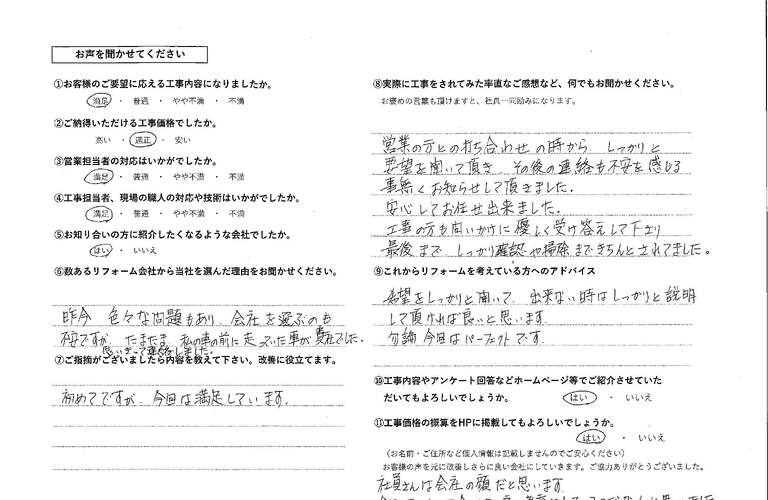 お声を聞かせてください
①お客様のご要望に応える工事内容になりましたか。
満足 ・ 普通 ・ やや不満 ・ 不満
②ご納得いただける工事価格でしたか。
高い ・ 適正 ・ 安い
③営業担当者の対応はいかがでしたか。
満足 ・ 普通 ・ やや不満 ・ 不満
④工事担当者、現場の職人の対応や技術はいかがでしたか。
満足 ・ 普通 ・ やや不満 ・ 不満
⑤お知り合いの方に紹介したくなるような会社でしたか。
はい ・ いいえ
⑥数あるリフォーム会社から当社を選んだ理由をお聞かせください。
昨今 色々な問題もあり、会社を選ぶのも
不安ですが、たまたま 私の車の前に走っていた車が貴社でした。
思いきって連絡しました。
⑦ご指摘がございましたら内容を教えて下さい。改善に役立てます。
初めてですが、今回は満足しています。
⑧実際に工事をされてみた率直なご感想など、何でもお聞かせください。
お褒めの言葉も頂けますと、社員一同励みになります。
営業の方との打ち合わせの時から、しっかりと
要望を聞いて頂き、その後の連絡も不安を感じる
事無くお知らせして頂きました。
安心してお任せ出来ました。
工事の方も問いかけに優しく受け答えして下さり
最後まで、しっかり確認や掃除まできちんとされてました。
⑨これからリフォームを考えている方へのアドバイス
希望をしっかりと聞いて、出来ない時はしっかりと説明
して頂ければ良いと思います。
勿論 今回はパーフェクトです。
⑩工事内容やアンケート回答などホームページ等でご紹介させていた
だいてもよろしいでしょうか。 はい ・ いいえ
⑪工事価格の概算をHPに掲載してもよろしいでしょうか。
はい ・ いいえ
（お名前・ご住所など個人情報は記載しませんのでご安心ください）
お客様の声を元に改善しさらに良い会社にしていきます。ご協力ありがとうございました。
社員さんは会社の顔だと思います